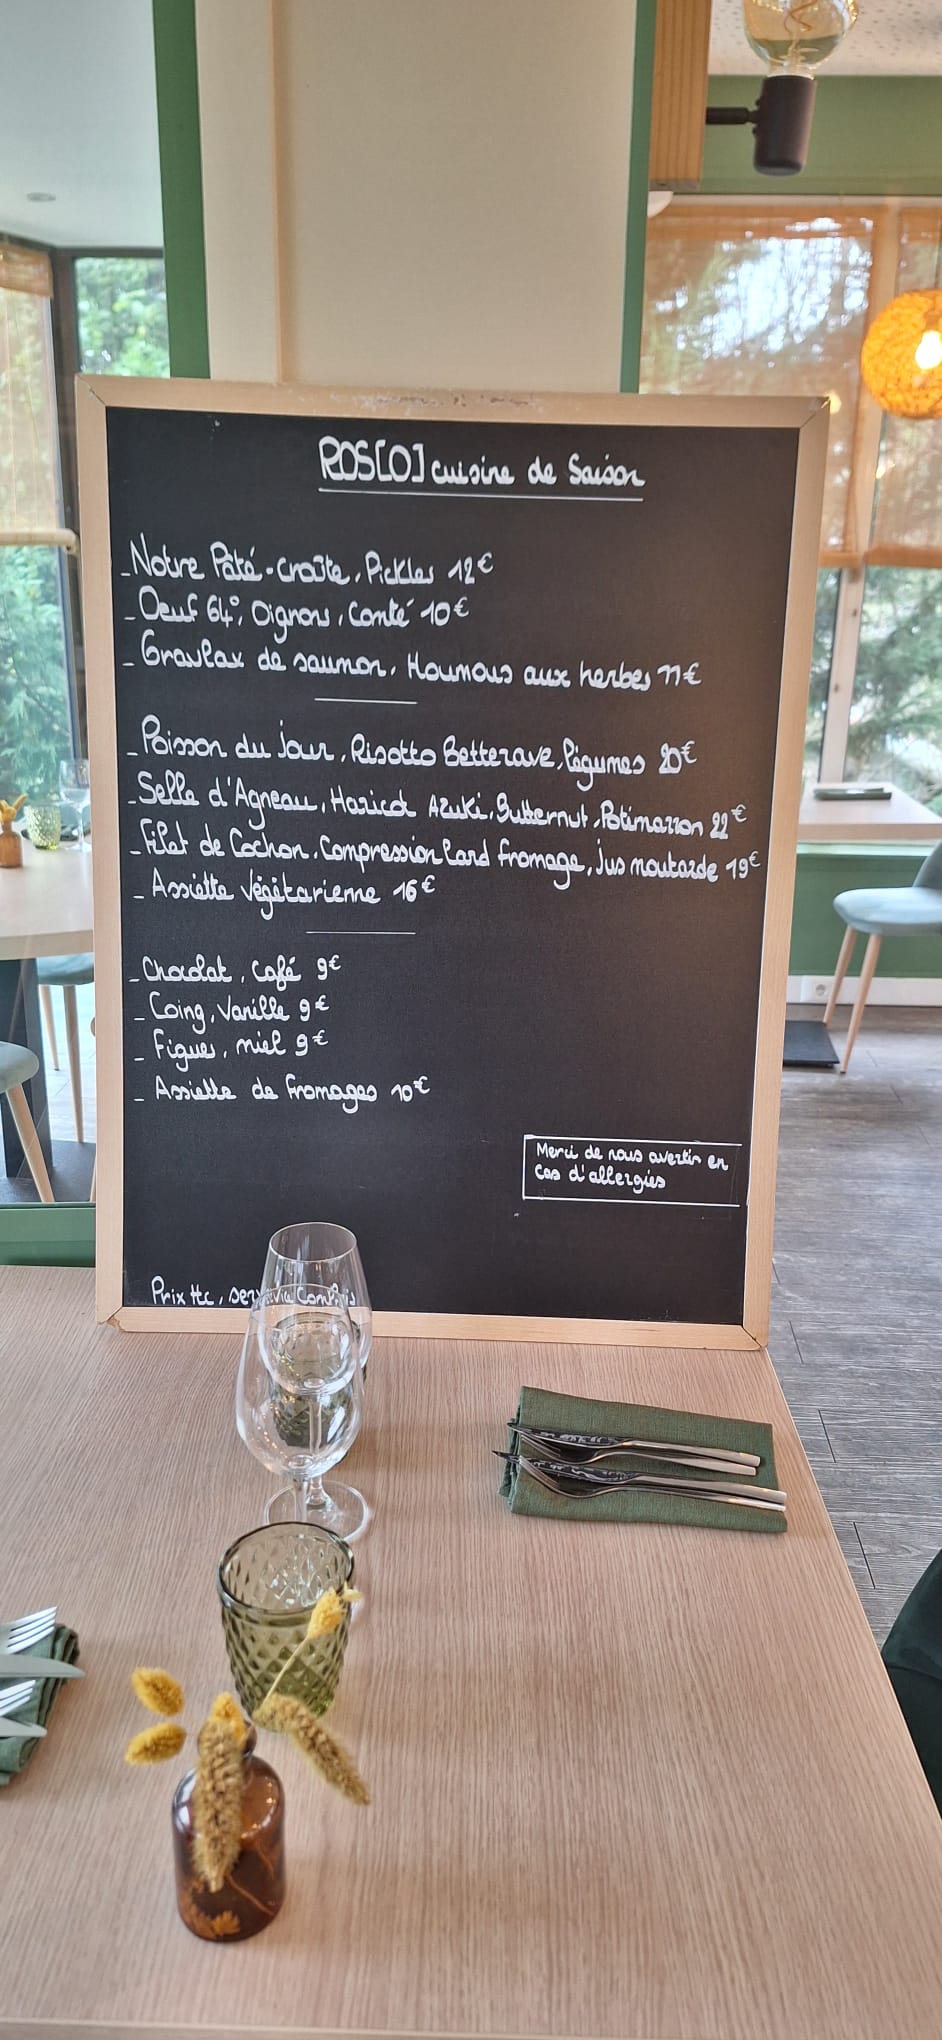 ROS[O] cuisine de Saison
- Notre Pâté-croûte, Pickles 12€
- Oeuf 64°, Oignons, Comté 10€
- Gravlax de saumon, Houmous aux herbes 11€
- Poisson du jour, Risotto Betterave, légumes 20€
- Selle d'Agneau, Haricot Azuki, Butternut, Potimarron 22€
- Filet de Cochon, Compression lard fromage, jus moutarde 19€
- Assiette végétarienne 16€
- Chocolat, café 9€
- Coing, Vanille 9€
- Figues, miel 9€
- Assiette de fromages 10€
Merci de nous avertir en
cas d'allergies
Prix